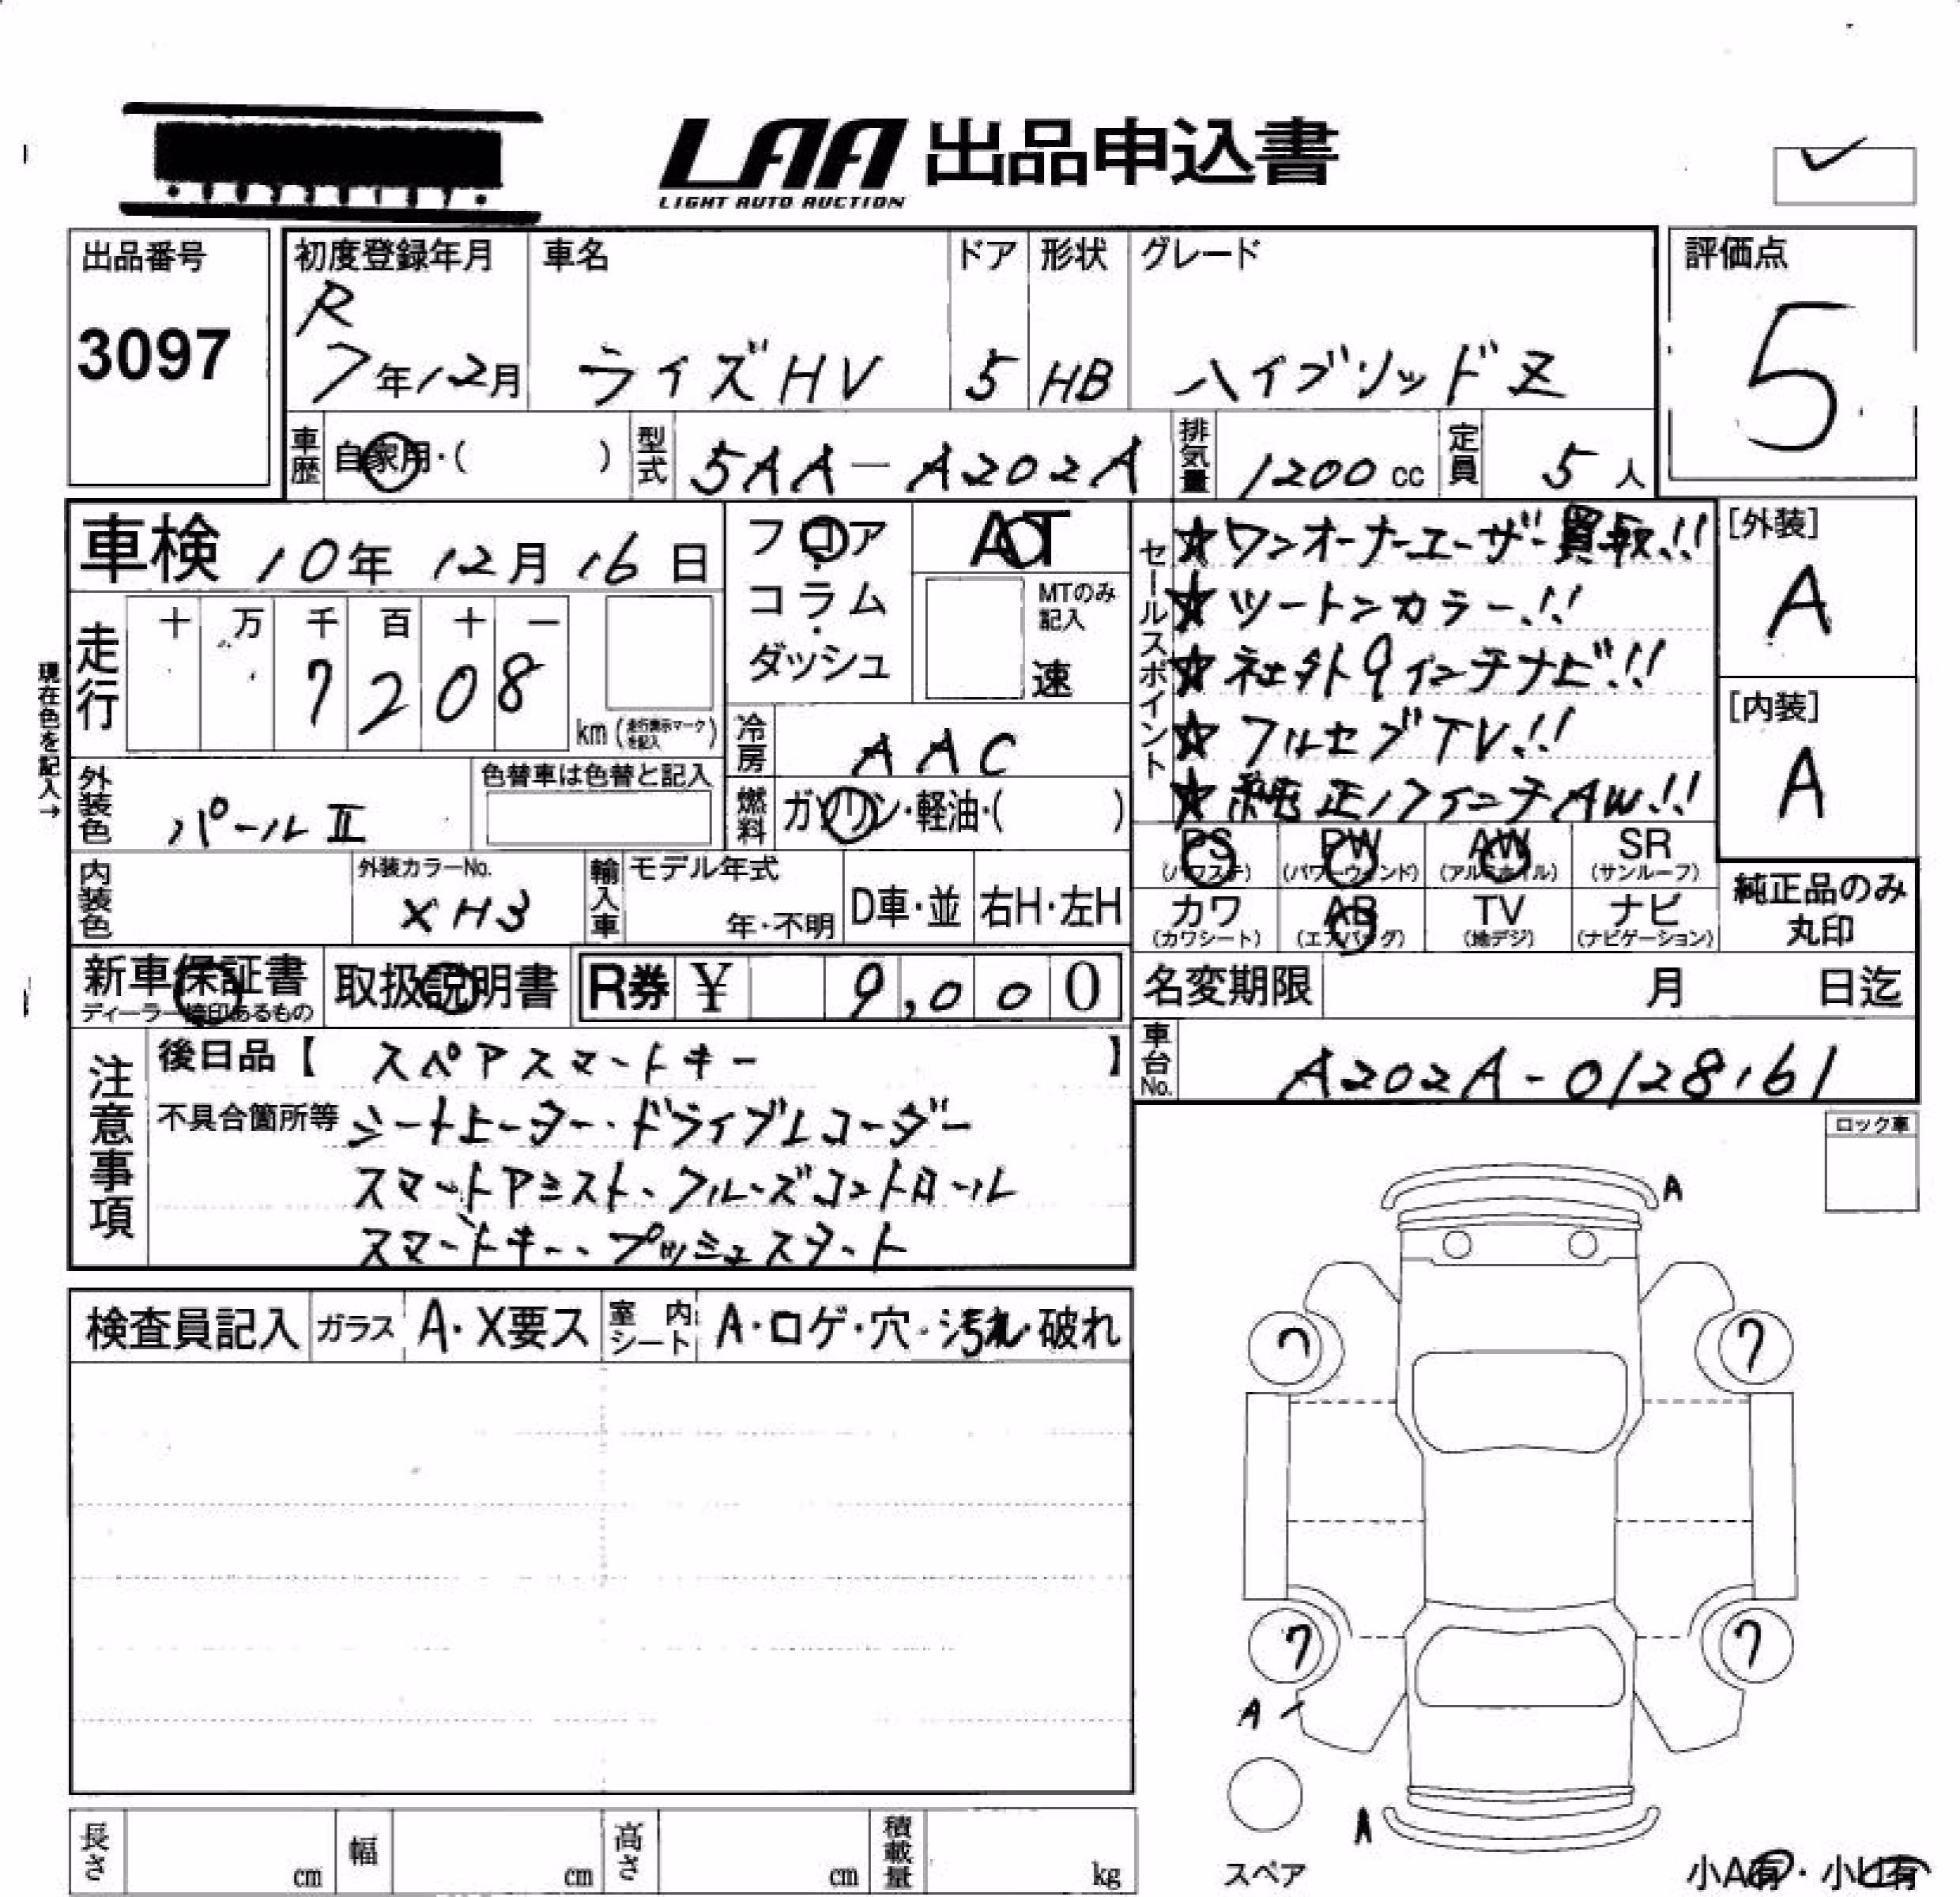 LAA 出品申込書
LIGHT AUTO AUCTION
出品番号
3097
初度登録年月
R
7年12月
車名
ライズHV
ドア
5
形状
HB
グレード
ハイブリッドZ
評価点
5
車歴
自家用・( )
型式
5AA-A202A
排気量
1200cc
定員
5人
車検 10年 12月 16日
フロア・コラム・ダッシュ
AT
MTのみ記入
速
セールスポイント
★ワンオーナーユーザー買取!!
★ツートンカラー!!
★社外9インチナビ!!
★フルセグTV!!
★純正17インチAW!!
[外装]
A
[内装]
A
現在色を記入→
走行
十 万 千 百 十 一
7 2 0 8
km (走行表示マークを記入)
冷房
AAC
外装色
パールⅡ
色替車は色替と記入
燃料
ガソリン・軽油・( )
内装色
外装カラーNo.
XH3
輸入車
モデル年式
年・不明
D車・並
右H・左H
PS
(パワステ)
PW
(パワーウィンド)
AW
(アルミホイル)
SR
(サンルーフ)
カワ
(カワシート)
AB
(エアバッグ)
TV
(地デジ)
ナビ
(ナビゲーション)
純正品のみ
丸印
新車保証書
ディーラー捺印あるもの
取扱説明書
R券 ¥ 9,000
名変期限
月 日迄
車台No.
A202A-0128161
注意事項
後日品【 スペアスマートキー 】
不具合箇所等 シートヒーター・ドライブレコーダー
スマートアシスト・クルーズコントロール
スマートキー・プッシュスタート
ロック車
検査員記入
ガラス
A・X要ス
室内シート
A・コゲ・穴・汚れ・破れ
A
7
7
7
7
A
A
スペア
小A有・小U有
長さ
cm
幅
cm
高さ
cm
積載量
kg